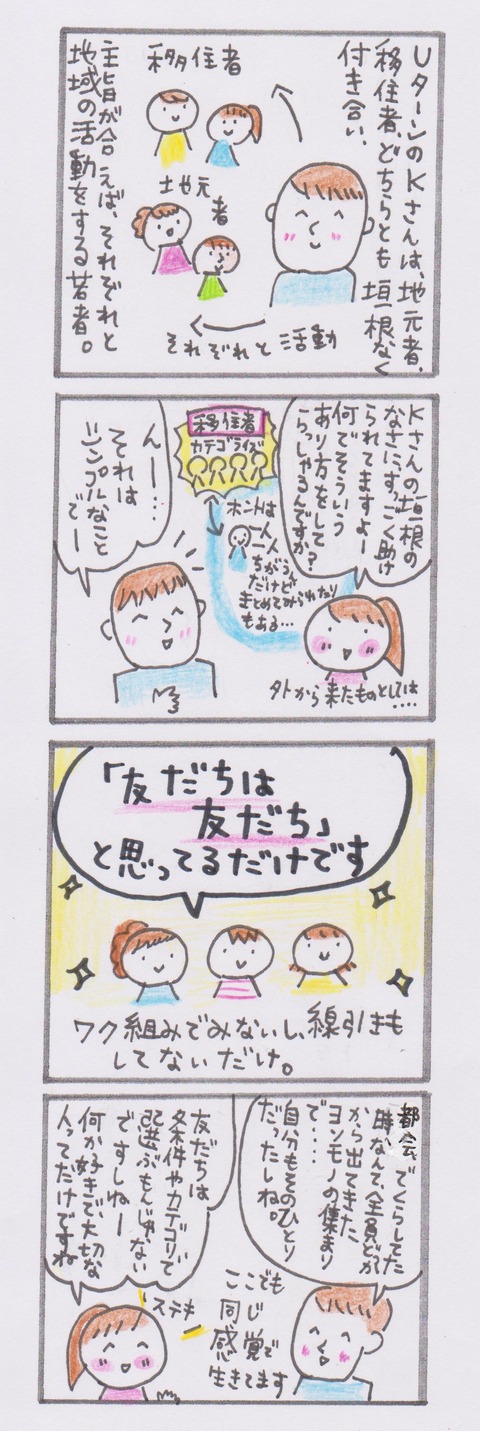 Uターンの Kさんは、地元者、
移住者、どちらとも垣根なく
付き合い、
移住者
土也元
者
主旨が合えば、それぞれと
地域の活動をする若者。
それぞれと活動
Kさんの垣根の
なさに、すごく助け
られてますよー
何でそういう
あり方をして
らっしゃるんですか?
移住者
カテゴライズ
ホントは
一人
一人
ちがうん
だけど
まとめてみられたり
もある…
んー…、
それは
シンプルなこと
でー
外から来たものとしては
‥‥
「友だちは
友だち」
と思ってるだけです
ワク組みでみないし、線引きも
してないだけ。
都会でくらしてた
時なんて、全員どっか
から出てきた
ヨソモノの集まり
で‥‥
自分もそのひとり
だったしね。
ここでも
同じ
感覚で
生きてます
友だちは
条件やカテゴリで
選ぶもんじゃない
ですしねー
何か好きで大切な
人ってだけですね
ステキ